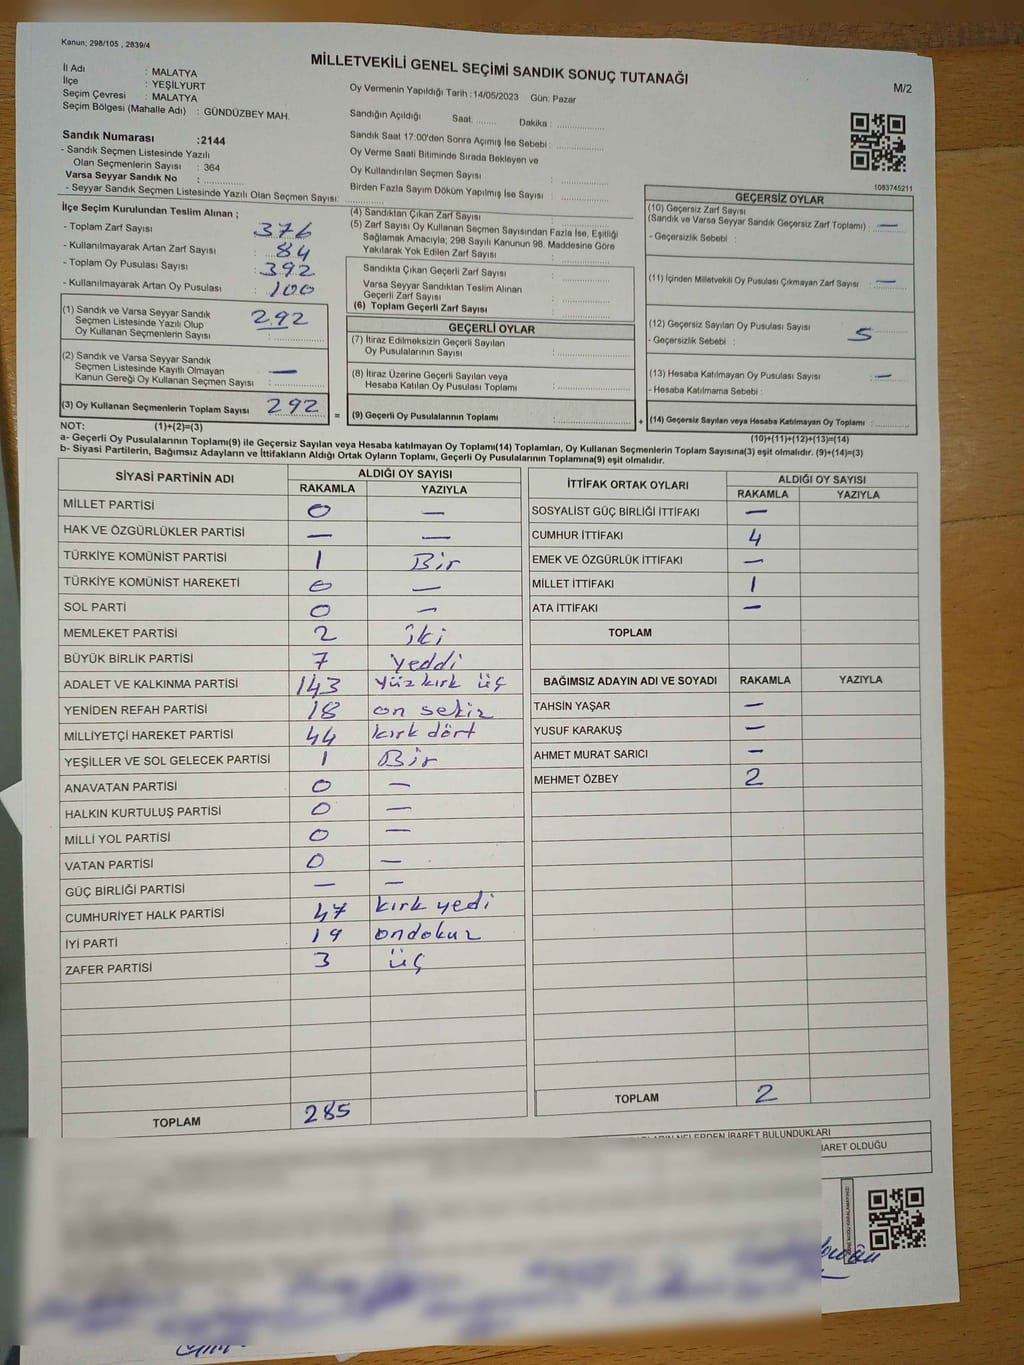 Kanun; 298/105 , 2839/4
MİLLETVEKİLİ GENEL SEÇİMİ SANDIK SONUÇ TUTANAĞI
M/2
İl Adı : MALATYA
İlçe : YEŞİLYURT
Seçim Çevresi : MALATYA
Seçim Bölgesi (Mahalle Adı) : GÜNDÜZBEY MAH.
Sandık Numarası :2144
- Sandık Seçmen Listesinde Yazılı
Olan Seçmenlerin Sayısı : 364
Varsa Seyyar Sandık No : ..............
- Seyyar Sandık Seçmen Listesinde Yazılı Olan Seçmen Sayısı: ..............
Oy Vermenin Yapıldığı Tarih :14/05/2023 Gün: Pazar
Sandığın Açıldığı Saat: ........ Dakika : ..............
Sandık Saat 17:00'den Sonra Açımış İse Sebebi : ..............
Oy Verme Saati Bitiminde Sırada Bekleyen ve
Oy Kullandırılan Seçmen Sayısı : ..............
Birden Fazla Sayım Döküm Yapılmış İse Sayısı : ..............
1083745211
İlçe Seçim Kurulundan Teslim Alınan ;
- Toplam Zarf Sayısı : 376
- Kullanılmayarak Artan Zarf Sayısı : 84
- Toplam Oy Pusulası Sayısı : 392
- Kullanılmayarak Artan Oy Pusulası : 100
(1) Sandık ve Varsa Seyyar Sandık
Seçmen Listesinde Yazılı Olup
Oy Kullanan Seçmenlerin Sayısı : 292
(2) Sandık ve Varsa Seyyar Sandık
Seçmen Listesinde Kayıtlı Olmayan
Kanun Gereği Oy Kullanan Seçmen Sayısı : —
(3) Oy Kullanan Seçmenlerin Toplam Sayısı 292 =
(4) Sandıktan Çıkan Zarf Sayısı : ..............
(5) Zarf Sayısı Oy Kullanan Seçmen Sayısından Fazla İse, Eşitliği
Sağlamak Amacıyla; 298 Sayılı Kanunun 98. Maddesine Göre
Yakılarak Yok Edilen Zarf Sayısı : ..............
Sandıkta Çıkan Geçerli Zarf Sayısı : ..............
Varsa Seyyar Sandıktan Teslim Alınan
Geçerli Zarf Sayısı : ..............
(6) Toplam Geçerli Zarf Sayısı : ..............
GEÇERLİ OYLAR
(7) İtiraz Edilmeksizin Geçerli Sayılan
Oy Pusulalarının Sayısı : ..............
(8) İtiraz Üzerine Geçerli Sayılan veya
Hesaba Katılan Oy Pusulası Toplamı : ..............
(9) Geçerli Oy Pusulalarının Toplamı : .............. +
GEÇERSİZ OYLAR
(10) Geçersiz Zarf Sayısı
(Sandık ve Varsa Seyyar Sandık Geçersiz Zarf Toplamı) : —
- Geçersizlik Sebebi :
(11) İçinden Milletvekili Oy Pusulası Çıkmayan Zarf Sayısı : —
(12) Geçersiz Sayılan Oy Pusulası Sayısı : 5
- Geçersizlik Sebebi :
(13) Hesaba Katılmayan Oy Pusulası Sayısı : —
- Hesaba Katılmama Sebebi :
(14) Geçersiz Sayılan veya Hesaba Katılmayan Oy Toplamı : ........
NOT: (1)+(2)=(3)
(10)+(11)+(12)+(13)=(14)
a- Geçerli Oy Pusulalarının Toplamı(9) ile Geçersiz Sayılan veya Hesaba katılmayan Oy Toplamı(14) Toplamları, Oy Kullanan Seçmenlerin Toplam Sayısına(3) eşit olmalıdır. (9)+(14)=(3)
b- Siyasi Partilerin, Bağımsız Adayların ve İttifakların Aldığı Ortak Oyların Toplamı, Geçerli Oy Pusulalarının Toplamına(9) eşit olmalıdır.
SİYASİ PARTİNİN ADI ALDIĞI OY SAYISI
RAKAMLA YAZIYLA
MİLLET PARTİSİ 0 —
HAK VE ÖZGÜRLÜKLER PARTİSİ — —
TÜRKİYE KOMÜNİST PARTİSİ 1 Bir
TÜRKİYE KOMÜNİST HAREKETİ 0 —
SOL PARTİ 0 —
MEMLEKET PARTİSİ 2 iki
BÜYÜK BİRLİK PARTİSİ 7 yeddi
ADALET VE KALKINMA PARTİSİ 143 yüz kırk üç
YENİDEN REFAH PARTİSİ 18 on sekiz
MİLLİYETÇİ HAREKET PARTİSİ 44 kırk dört
YEŞİLLER VE SOL GELECEK PARTİSİ 1 Bir
ANAVATAN PARTİSİ 0 —
HALKIN KURTULUŞ PARTİSİ 0 —
MİLLİ YOL PARTİSİ 0 —
VATAN PARTİSİ 0 —
GÜÇ BİRLİĞİ PARTİSİ — —
CUMHURİYET HALK PARTİSİ 47 kırk yedi
İYİ PARTİ 19 ondokuz
ZAFER PARTİSİ 3 üç
TOPLAM 285
İTTİFAK ORTAK OYLARI ALDIĞI OY SAYISI
RAKAMLA YAZIYLA
SOSYALİST GÜÇ BİRLİĞİ İTTİFAKI —
CUMHUR İTTİFAKI 4
EMEK VE ÖZGÜRLÜK İTTİFAKI —
MİLLET İTTİFAKI 1
ATA İTTİFAKI —
TOPLAM
BAĞIMSIZ ADAYIN ADI VE SOYADI RAKAMLA YAZIYLA
TAHSİN YAŞAR —
YUSUF KARAKUŞ —
AHMET MURAT SARICI —
MEHMET ÖZBEY 2
TOPLAM 2
NELERDEN İBARET BULUNDUKLARI
OLDUĞU